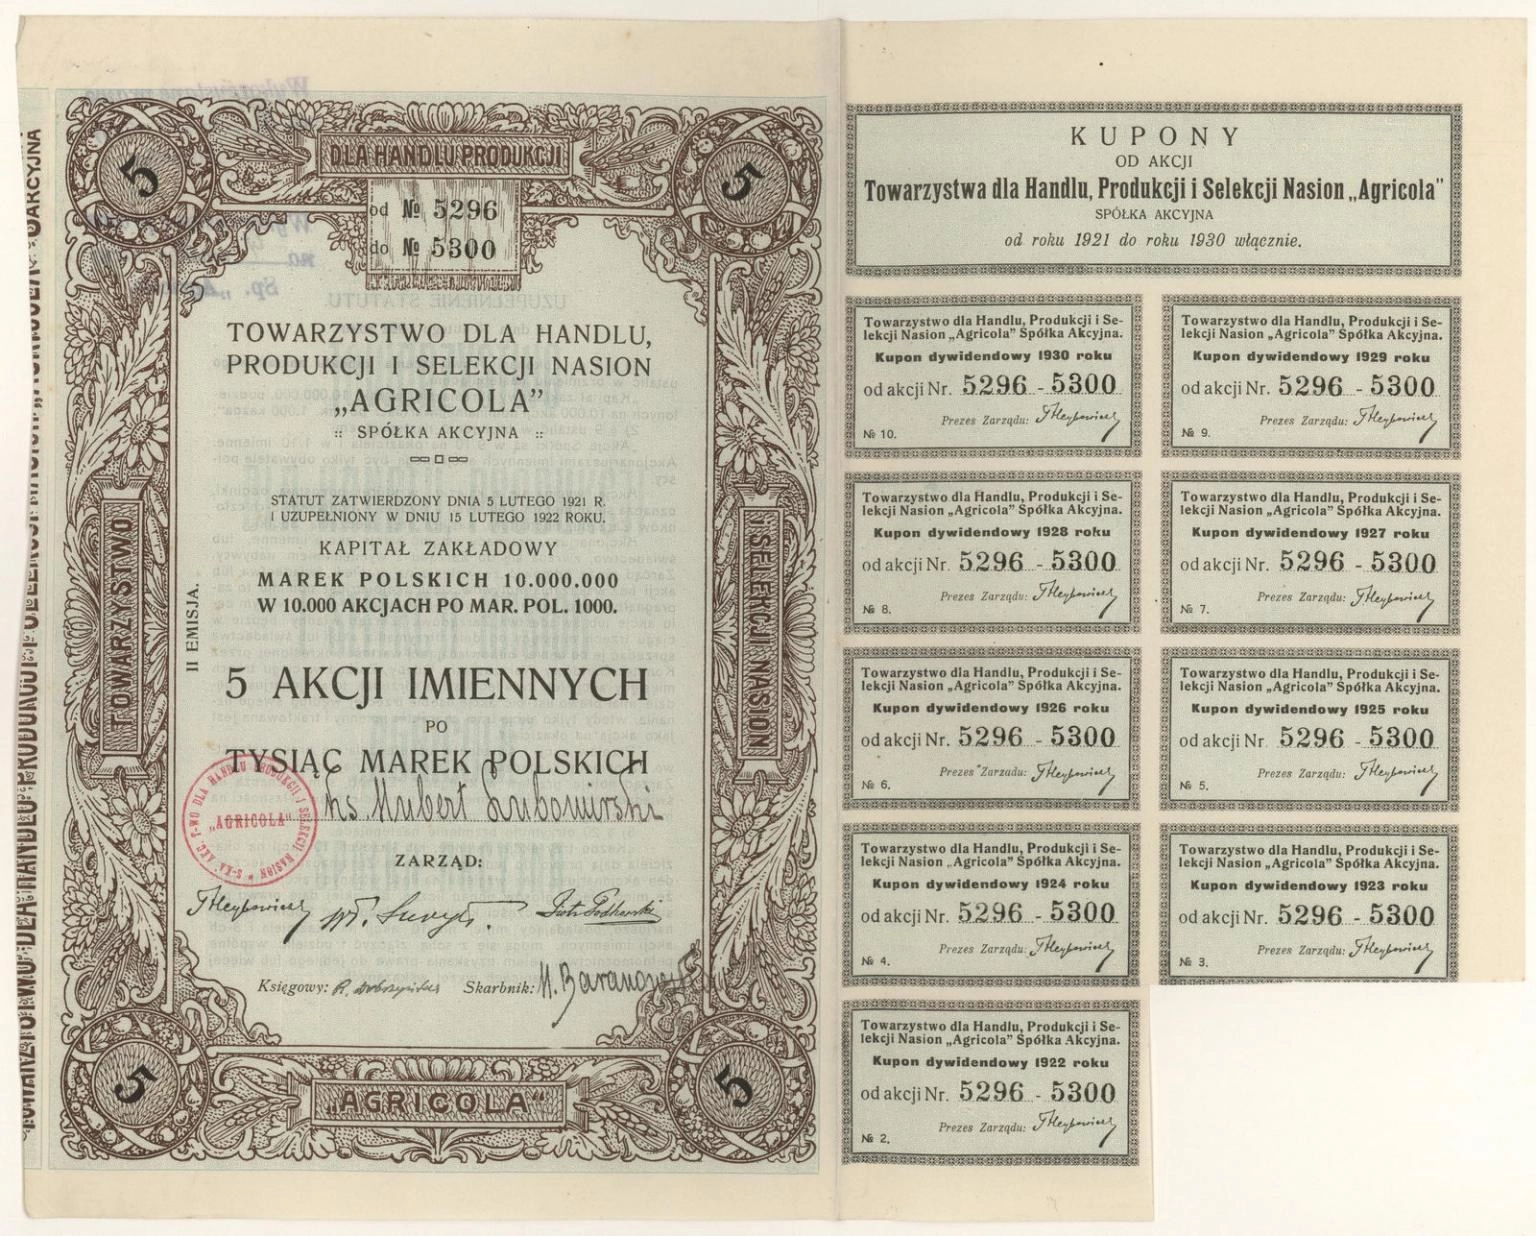 DLA HANDLU PRODUKCJI
5
5
od № 5296
do № 5300
TOWARZYSTWO DLA HANDLU,
PRODUKCJI I SELEKCJI NASION
„AGRICOLA”
:: SPÓŁKA AKCYJNA ::
STATUT ZATWIERDZONY DNIA 5 LUTEGO 1921 R.
I UZUPEŁNIONY W DNIU 15 LUTEGO 1922 ROKU.
KAPITAŁ ZAKŁADOWY
MAREK POLSKICH 10.000.000
W 10.000 AKCJACH PO MAR. POL. 1000.
II EMISJA.
TOWARZYSTWO
I SELEKCJI NASION
5 AKCJI IMIENNYCH
PO
TYSIĄC MAREK POLSKICH
ks. Hubert Lubomirski
„AGRICOLA”
ZARZĄD:
Księgowy:
Skarbnik:
5
5
„AGRICOLA”
KUPONY
OD AKCJI
Towarzystwa dla Handlu, Produkcji i Selekcji Nasion „Agricola”
SPÓŁKA AKCYJNA
od roku 1921 do roku 1930 włącznie.
Towarzystwo dla Handlu, Produkcji i Se-
lekcji Nasion „Agricola” Spółka Akcyjna.
Kupon dywidendowy 1930 roku
od akcji Nr. 5296 - 5300
Prezes Zarządu:
№ 10.
Towarzystwo dla Handlu, Produkcji i Se-
lekcji Nasion „Agricola” Spółka Akcyjna.
Kupon dywidendowy 1929 roku
od akcji Nr. 5296 - 5300
Prezes Zarządu:
№ 9.
Towarzystwo dla Handlu, Produkcji i Se-
lekcji Nasion „Agricola” Spółka Akcyjna.
Kupon dywidendowy 1928 roku
od akcji Nr. 5296 - 5300
Prezes Zarządu:
№ 8.
Towarzystwo dla Handlu, Produkcji i Se-
lekcji Nasion „Agricola” Spółka Akcyjna.
Kupon dywidendowy 1927 roku
od akcji Nr. 5296 - 5300
Prezes Zarządu:
№ 7.
Towarzystwo dla Handlu, Produkcji i Se-
lekcji Nasion „Agricola” Spółka Akcyjna.
Kupon dywidendowy 1926 roku
od akcji Nr. 5296 - 5300
Prezes Zarządu:
№ 6.
Towarzystwo dla Handlu, Produkcji i Se-
lekcji Nasion „Agricola” Spółka Akcyjna.
Kupon dywidendowy 1925 roku
od akcji Nr 5296 - 5300
Prezes Zarządu:
№ 5.
Towarzystwo dla Handlu, Produkcji i Se-
lekcji Nasion „Agricola” Spółka Akcyjna.
Kupon dywidendowy 1924 roku
od akcji Nr. 5296 - 5300
Prezes Zarządu:
№ 4.
Towarzystwo dla Handlu, Produkcji i Se-
lekcji Nasion „Agricola” Spółka Akcyjna.
Kupon dywidendowy 1923 roku
od akcji Nr. 5296 - 5300
Prezes Zarządu:
№ 3.
Towarzystwo dla Handlu, Produkcji i Se-
lekcji Nasion „Agricola” Spółka Akcyjna.
Kupon dywidendowy 1922 roku
od akcji Nr. 5296 - 5300
Prezes Zarządu:
№ 2.